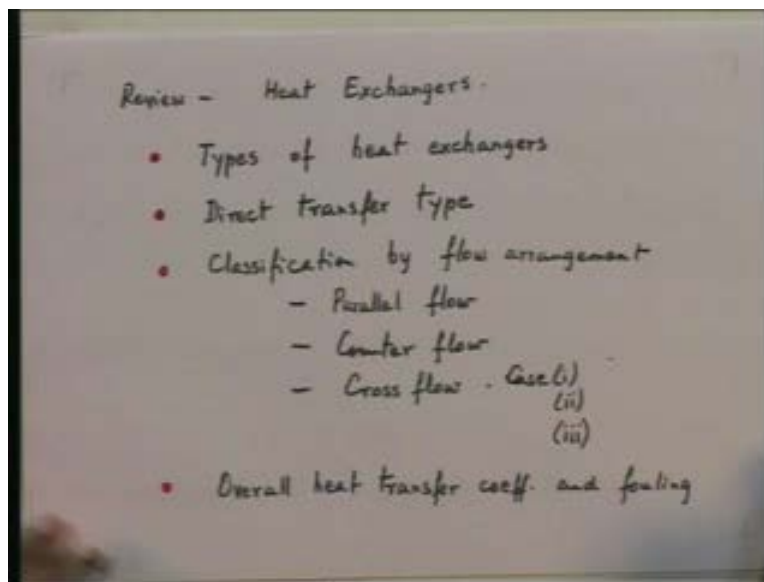 Review - Heat Exchangers.
• Types of heat exchangers
• Direct transfer type
• Classification by flow arrangement
- Parallel flow
- Counter flow
- Cross flow. Case (i)
(ii)
(iii)
• Overall heat transfer coeff. and fouling